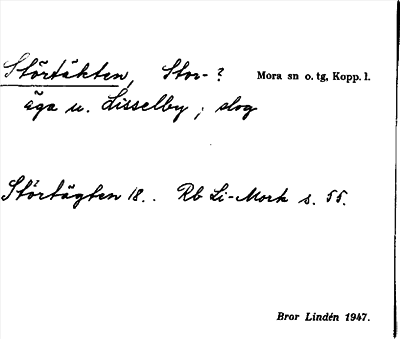 Störtäkten, Stor-? Mora sn o. tg, Kopp. l.
äga u. Lisselby ; slog
Störtägten 18.. Rb Li-Mork s. 55.
Bror Lindén 1947.